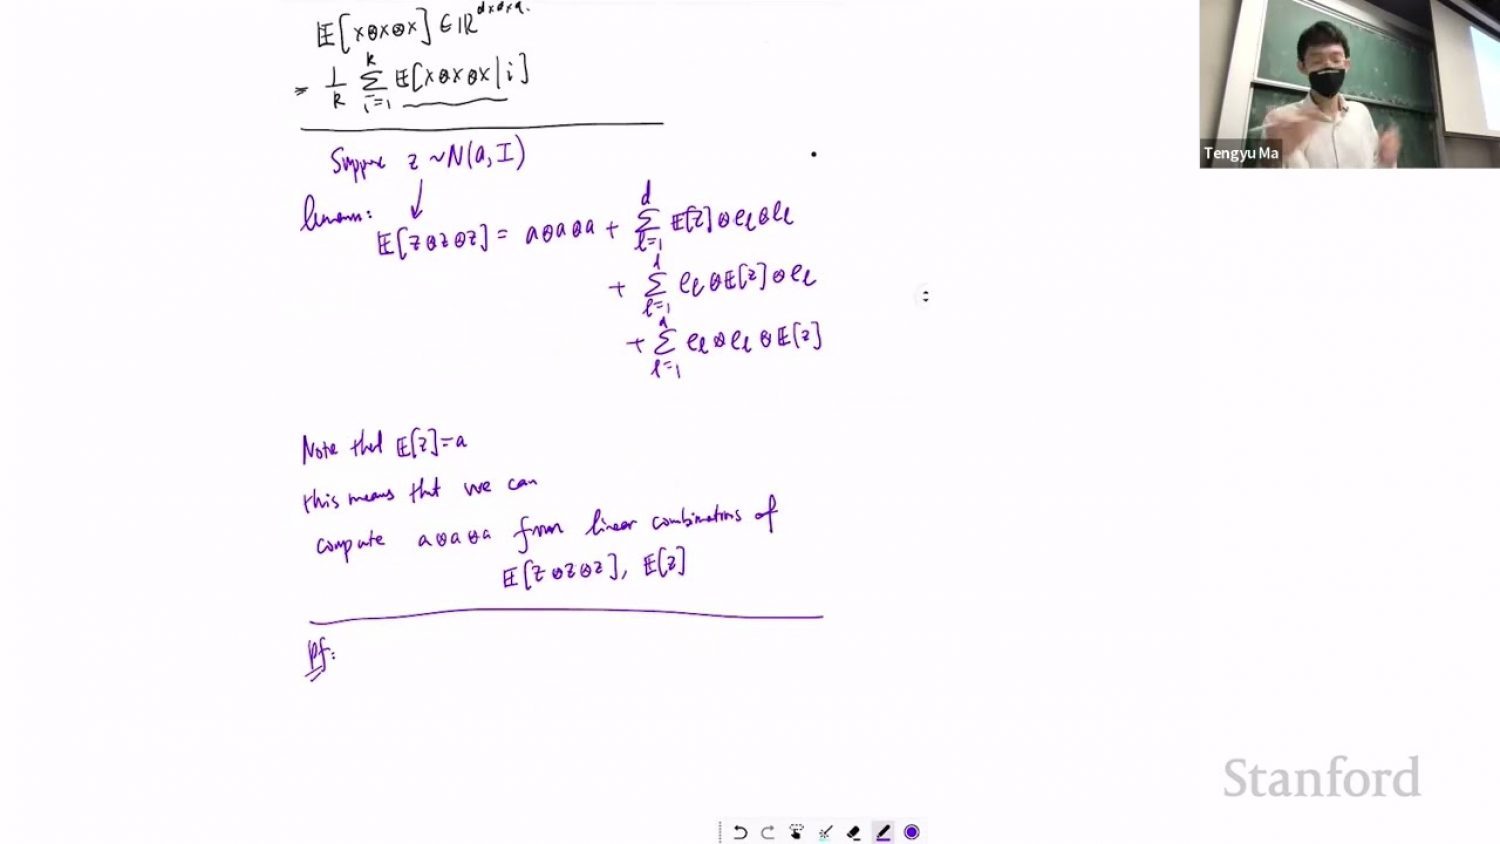 𝔼[x⊗x⊗x] ∈ ℝ^{d×d×d}.
= 1/k ∑_{i=1}^{k} 𝔼[x⊗x⊗x|i]
Suppose z ~ N(a, I)
Lemma:
𝔼[z⊗z⊗z] = a⊗a⊗a + ∑_{l=1}^{d} 𝔼[z]⊗e_l⊗e_l
+ ∑_{l=1}^{d} e_l⊗𝔼[z]⊗e_l
+ ∑_{l=1}^{d} e_l⊗e_l⊗𝔼[z]
Note that 𝔼[z]=a
this means that we can
compute a⊗a⊗a from linear combinations of
𝔼[z⊗z⊗z], 𝔼[z]
Pf:
Tengyu Ma
Stanford